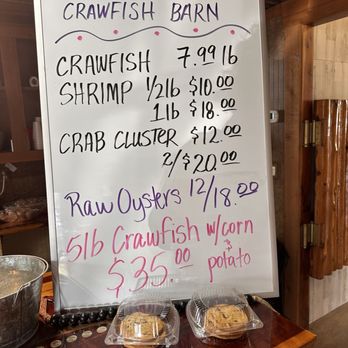 CRAWFISH BARN
CRAWFISH 7.99 lb
SHRIMP 1/2lb $10.00
1lb $18.00
CRAB CLUSTER $12.00
2/$20.00
Raw Oysters 12/18.00
5lb Crawfish w/corn & potato
$35.00